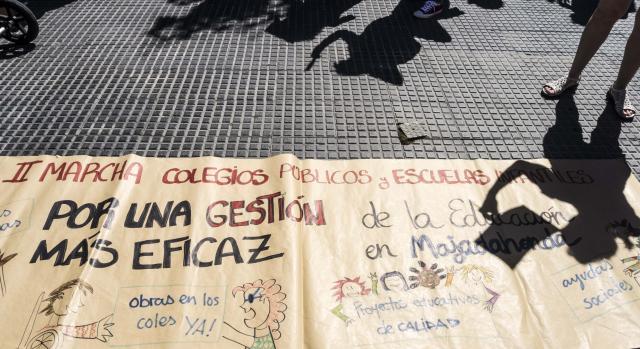 II MARCHA COLEGIOS PÚBLICOS y ESCUELAS INFANTILES
POR UNA GESTIÓN de la Educación
MÁS EFICAZ en Majadahonda
obras en los
coles YA!
Proyectos educativos
de CALIDAD
ayudas
sociales